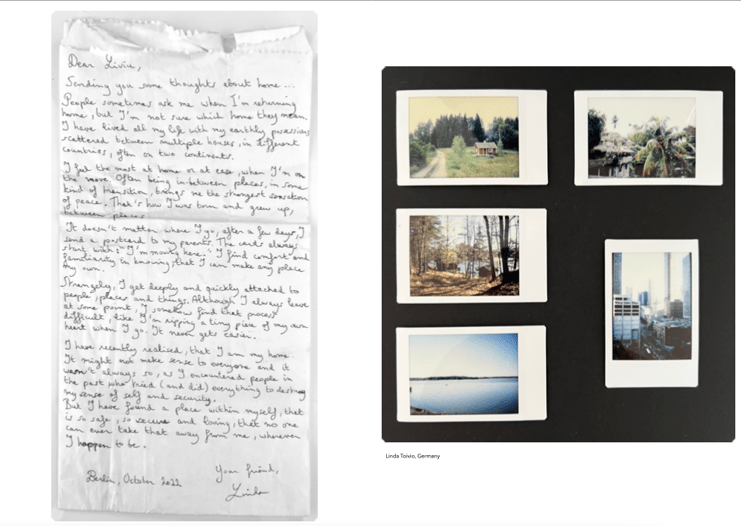 Dear Livia,
Sending you some thoughts about home...
People sometimes ask me when I'm returning
home, but I'm not sure which home they mean.
I have lived all my life with my earthly possessions
scattered between multiple houses, in different
countries, often on two continents.
I feel the most at home or at ease, when I'm on
the move. Often being in-between places, in some
kind of transition, brings me the strongest sensation
of peace. That's how I was born and grew up,
between places.
It doesn't matter where I go, after a few days, I
send a postcard to my parents. The cards always
start with: "I'm moving here." I find comfort and
familiarity in knowing, that I can make any place
my own.
Strangely, I get deeply and quickly attached to
people, places and things. Although I always leave
at some point, I somehow find that process
difficult, like I'm ripping a tiny piece of my own
heart when I go. It never gets easier.
I have recently realised, that I am my home.
It might not make sense to everyone and it
wasn't always so, as I encountered people in
the past who tried (and did) everything to destroy
my sense of self and security.
But I have found a place within myself, that
is so safe, so secure and loving, that no one
can ever take that away from me, wherever
I happen to be.
Your friend,
Berlin, October 2022
Linda
Linda Toivio, Germany